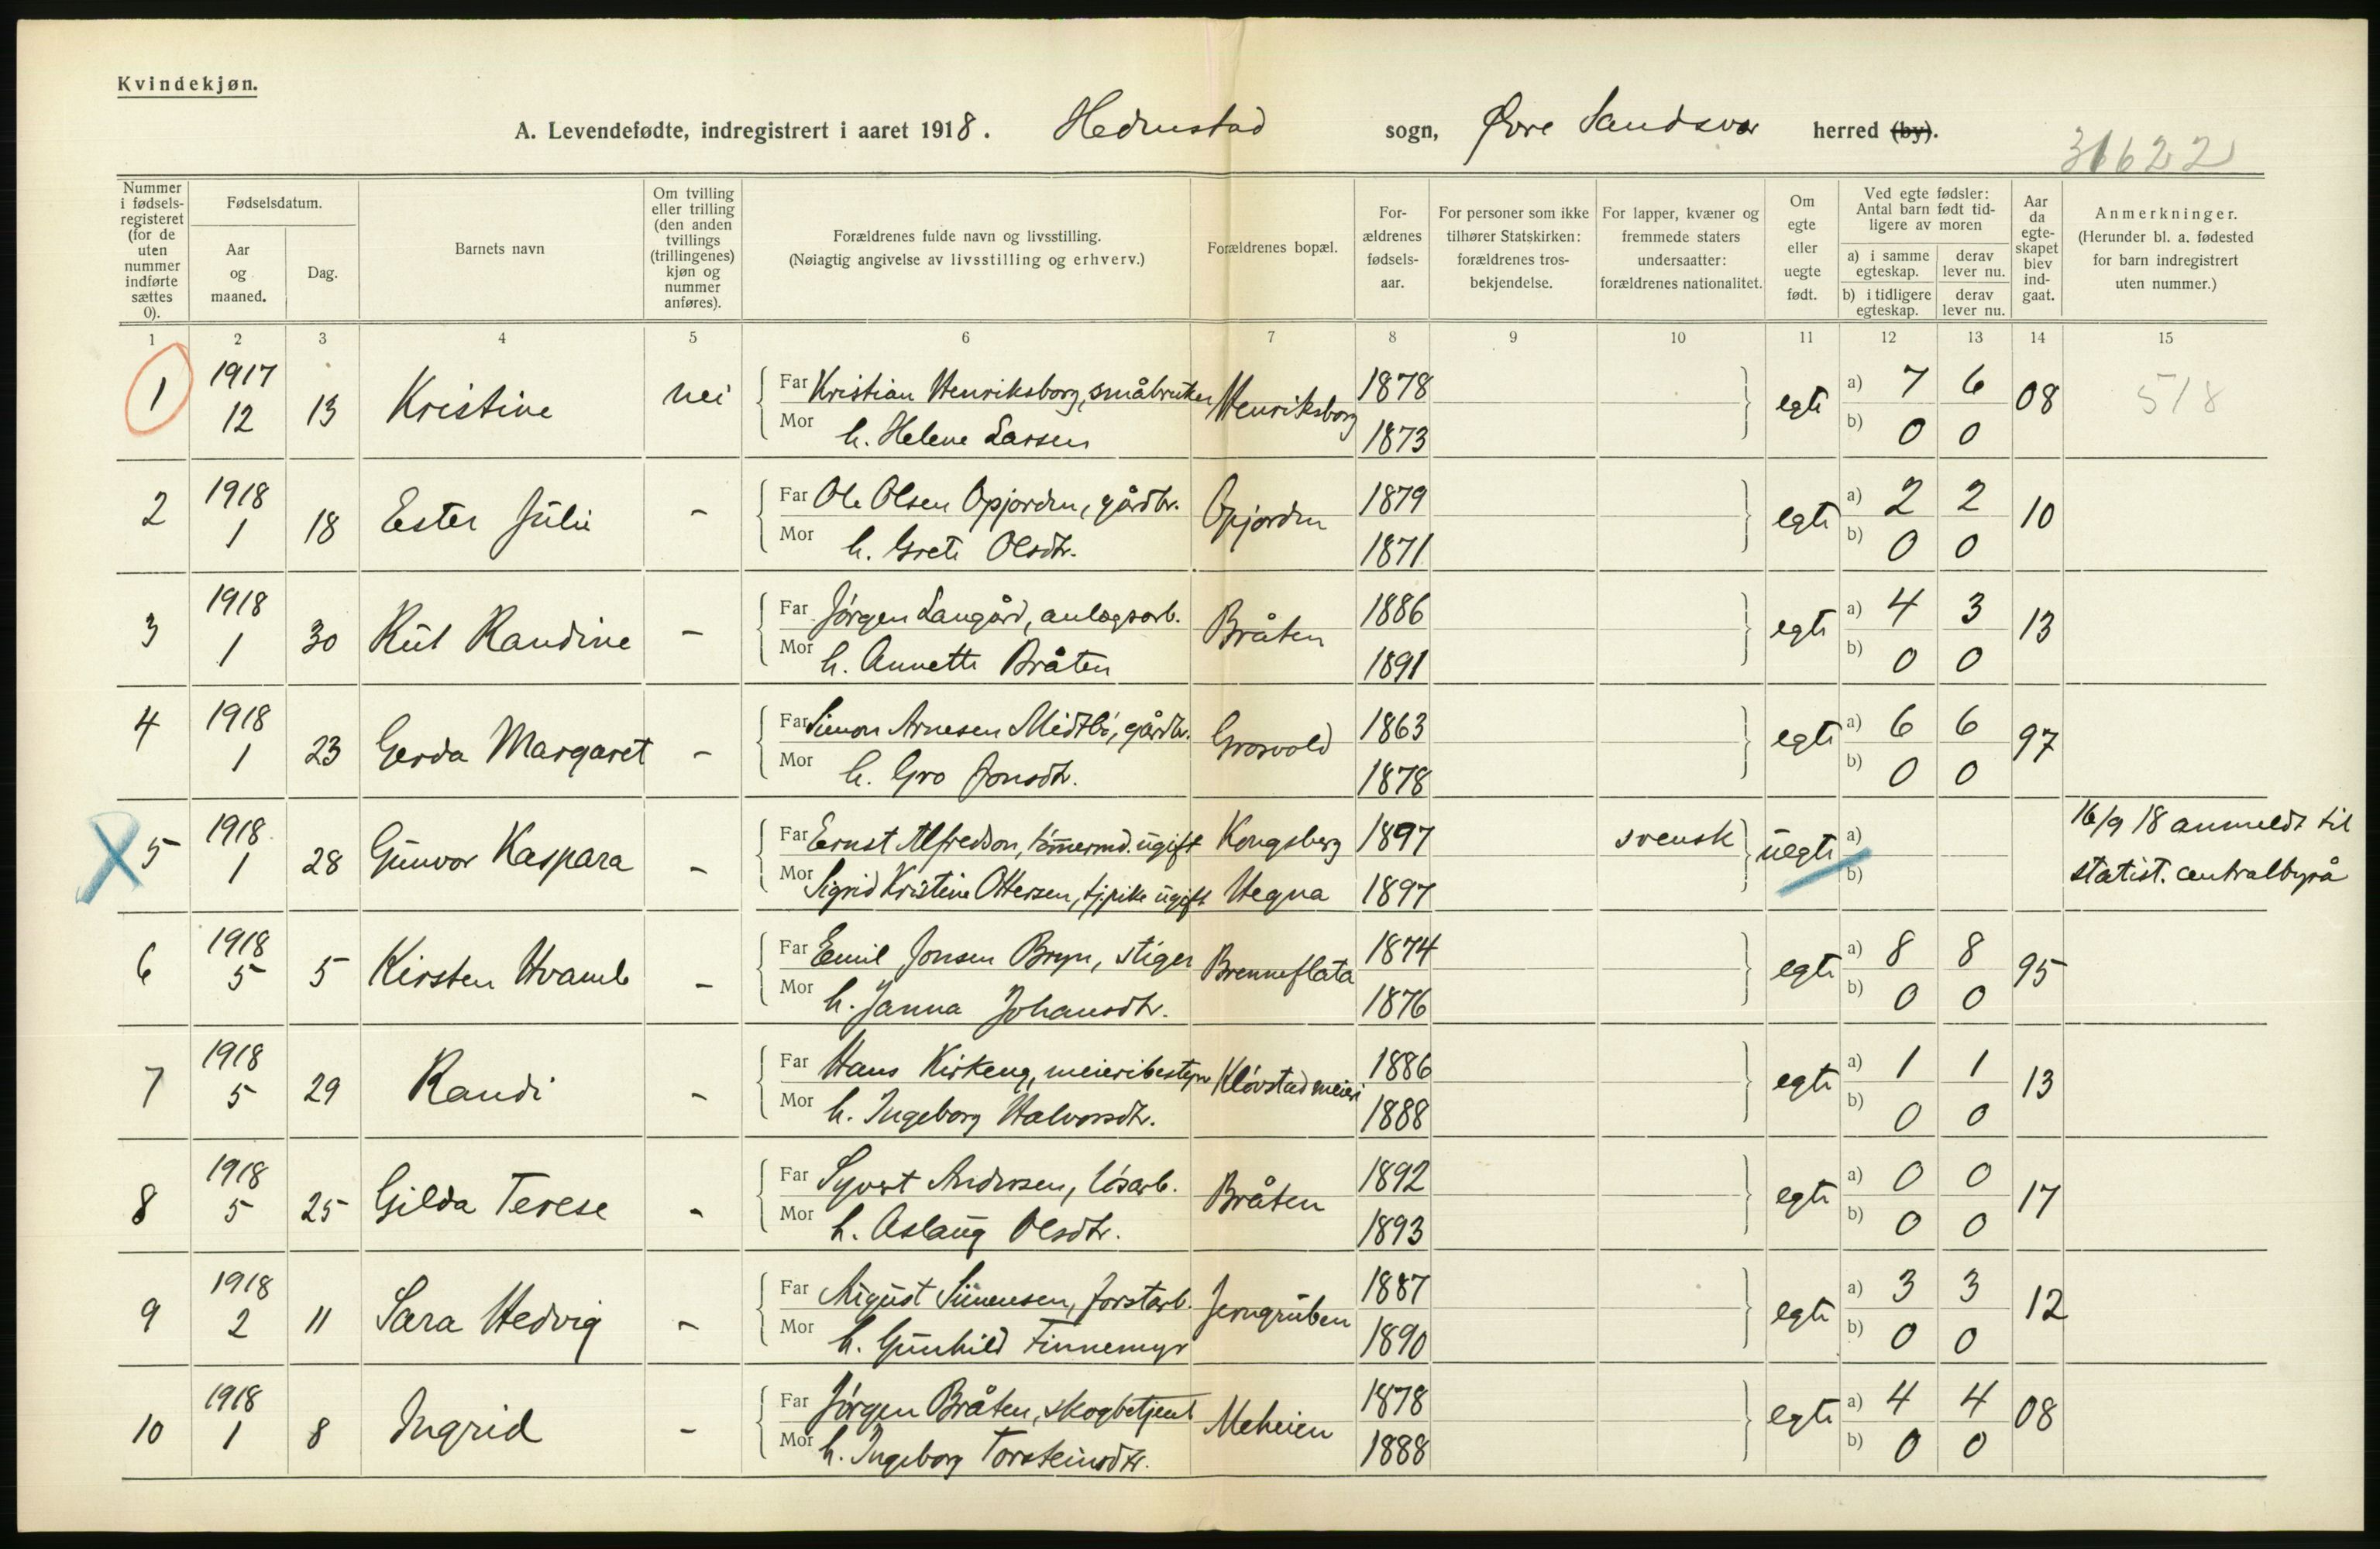 Kvindekjøn.
A. Levendefødte, indregistrert i aaret 1918. Hedenstad sogn, Øvre Sandsvær herred (by).
31622
Nummer i fødsels-registeret (for de uten nummer indførte sættes 0).
Fødselsdatum.
Aar og maaned.
Dag.
Barnets navn
Om tvilling eller trilling (den anden tvillings (trillingenes) kjøn og nummer anføres).
Forældrenes fulde navn og livsstilling.
(Nøiagtig angivelse av livsstilling og erhverv.)
Forældrenes bopæl.
For-ældrenes fødsels-aar.
For personer som ikke tilhører Statskirken: forældrenes tros-bekjendelse.
For lapper, kvæner og fremmede staters undersaatter: forældrenes nationalitet.
Om egte eller uegte født.
Ved egte fødsler: Antal barn født tid-ligere av moren
a) i samme egteskap.
derav lever nu.
b) i tidligere egteskap.
derav lever nu.
Aar da egte-skapet blev ind-gaat.
Anmerkninger.
(Herunder bl. a. fødested for barn indregistrert uten nummer.)
1 2 3 4 5 6 7 8 9 10 11 12 13 14 15
1 1917 12 13 Kristine nei Far Kristian Henriksborg, småbruker Henriksborg 1878 egte a) 7 6 08 518
Mor h. Helene Larsen 1873 b) 0 0
2 1918 1 18 Ester Julie - Far Ole Olsen Opjorden, gårdbr. Opjorden 1879 egte a) 2 2 10
Mor h. Grete Olsdtr. 1871 b) 0 0
3 1918 1 30 Rut Randine - Far Jørgen Langård, anlægsarb. Bråten 1886 egte a) 4 3 13
Mor h. Annette Bråten 1891 b) 0 0
4 1918 1 23 Gerda Margaret - Far Simon Arnesen Midtbø, gårdbr. Grosvold 1863 egte a) 6 6 97
Mor h. Gro Jonsdtr. 1878 b) 0 0
X 5 1918 1 28 Gunvor Kaspara - Far Ernst Alfredson, tømmermd. ugift Kongsberg 1897 svensk uegte a) 16/9 18 anmeldt til
Mor Sigrid Kristine Ottersen, tj.pike ugift Hegna 1897 b) statist. centralbyrå
6 1918 5 5 Kirsten Hvamb - Far Emil Jonsen Bryn, stiger Brenneflata 1874 egte a) 8 8 95
Mor h. Janna Johansdtr. 1876 b) 0 0
7 1918 5 29 Randi - Far Hans Kirkeng, meieribestyr Kløvstad meieri 1886 egte a) 1 1 13
Mor h. Ingeborg Halvorsdtr. 1888 b) 0 0
8 1918 5 25 Gilda Terese - Far Syvert Andersen, løsarb. Bråten 1892 egte a) 0 0 17
Mor h. Aslaug Olsdtr. 1893 b) 0 0
9 1918 2 11 Sara Hedvig - Far August Simensen, forstarb. Jerngruben 1887 egte a) 3 3 12
Mor h. Gunhild Finnemyr 1890 b) 0 0
10 1918 1 8 Ingrid - Far Jørgen Bråten, skogbetjent Meheien 1878 egte a) 4 4 08
Mor h. Ingeborg Torsteinsdtr. 1888 b) 0 0